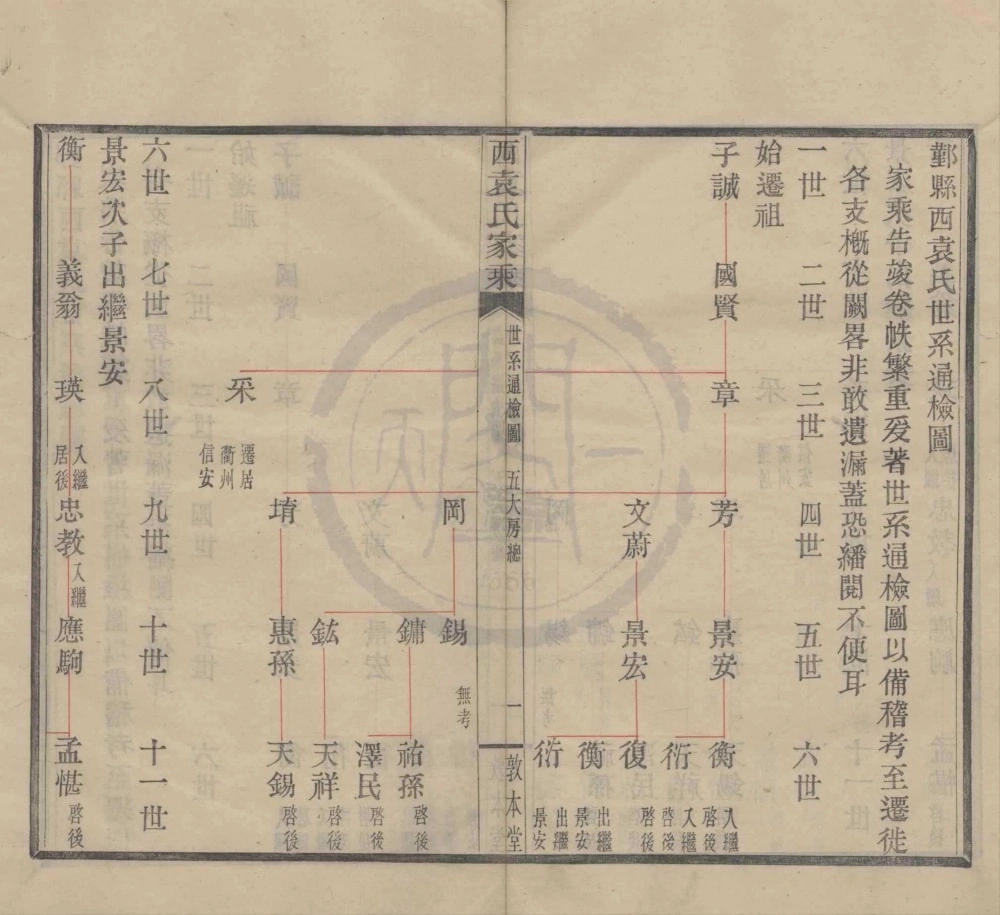 鄞縣西袁氏世系通檢圖
家乘告竣卷帙繁重爰著世系通檢圖以備稽考至遷徙
各支槪從闕畧非敢遺漏蓋恐繙閱不便耳
一世 二世 三世 四世 五世 六世
始遷祖
子誠 國賢 章 芳 景安 衡 入繼啓後
衍 入繼啓後
文蔚 景宏 復 啓後
衡 出繼景安
衍 出繼景安
西袁氏家乘 世系通檢圖 五大房總 一 敦本堂
岡 錫 無考
鏞 祐孫 啓後
澤民 啓後
鈜 天祥 啓後
堉 惠孫 天錫 啓後
采 遷居衢州信安
六世 七世 八世 九世 十世 十一世
景宏次子出繼景安
衡 義翁 瑛 入繼居後 忠教 入繼 應駒 孟愖 啓後